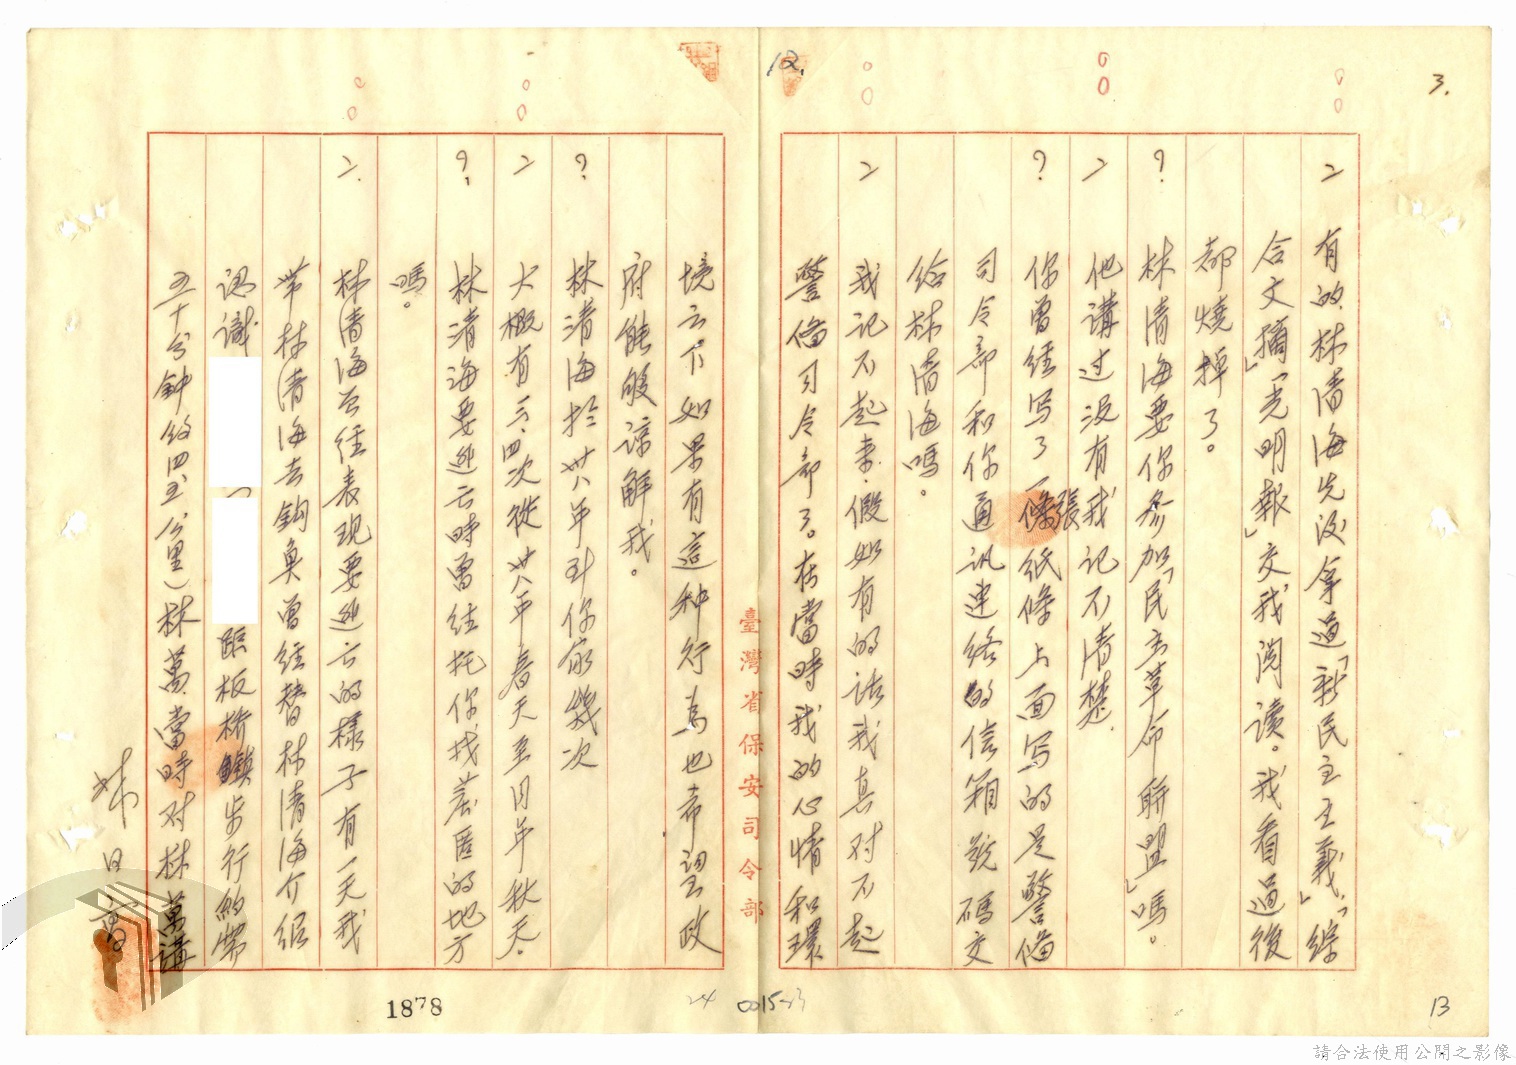 3.
二 有的林清海先後拿過「新民主主義」、「綜
合文摘」「光明報」交我閱读。我看過後
都燒掉了。
? 林清海要你參加「民主革命聯盟」嗎。
二 他講过没有我記不清楚.
? 你曾經写了一張紙條上面写的是警俻
司令部和你通讯連络的信箱號碼交
给林清海嗎。
二 我记不起来.假如有的话我真对不起
警俻司令部了。在當時我的心情和環
臺灣省保安司令部
12.
境云下如果有這种行為也希望政
府能够谅解我。
? 林清海於卅八年到你家幾次
二 大概有三.四次從卅八年春天至同年秋天.
?. 林清海要逃亡時曾经托你找差匿的地方
嗎。
二. 林清海曾经表現要逃亡的樣子有一天我
带林清海去鈎魚曾经替林清海介绍
認識 距板桥鎮步行約需
五十分钟约四五公里)林萬當時对林萬講
1878
24
0015-23
13
請合法使用公開之影像